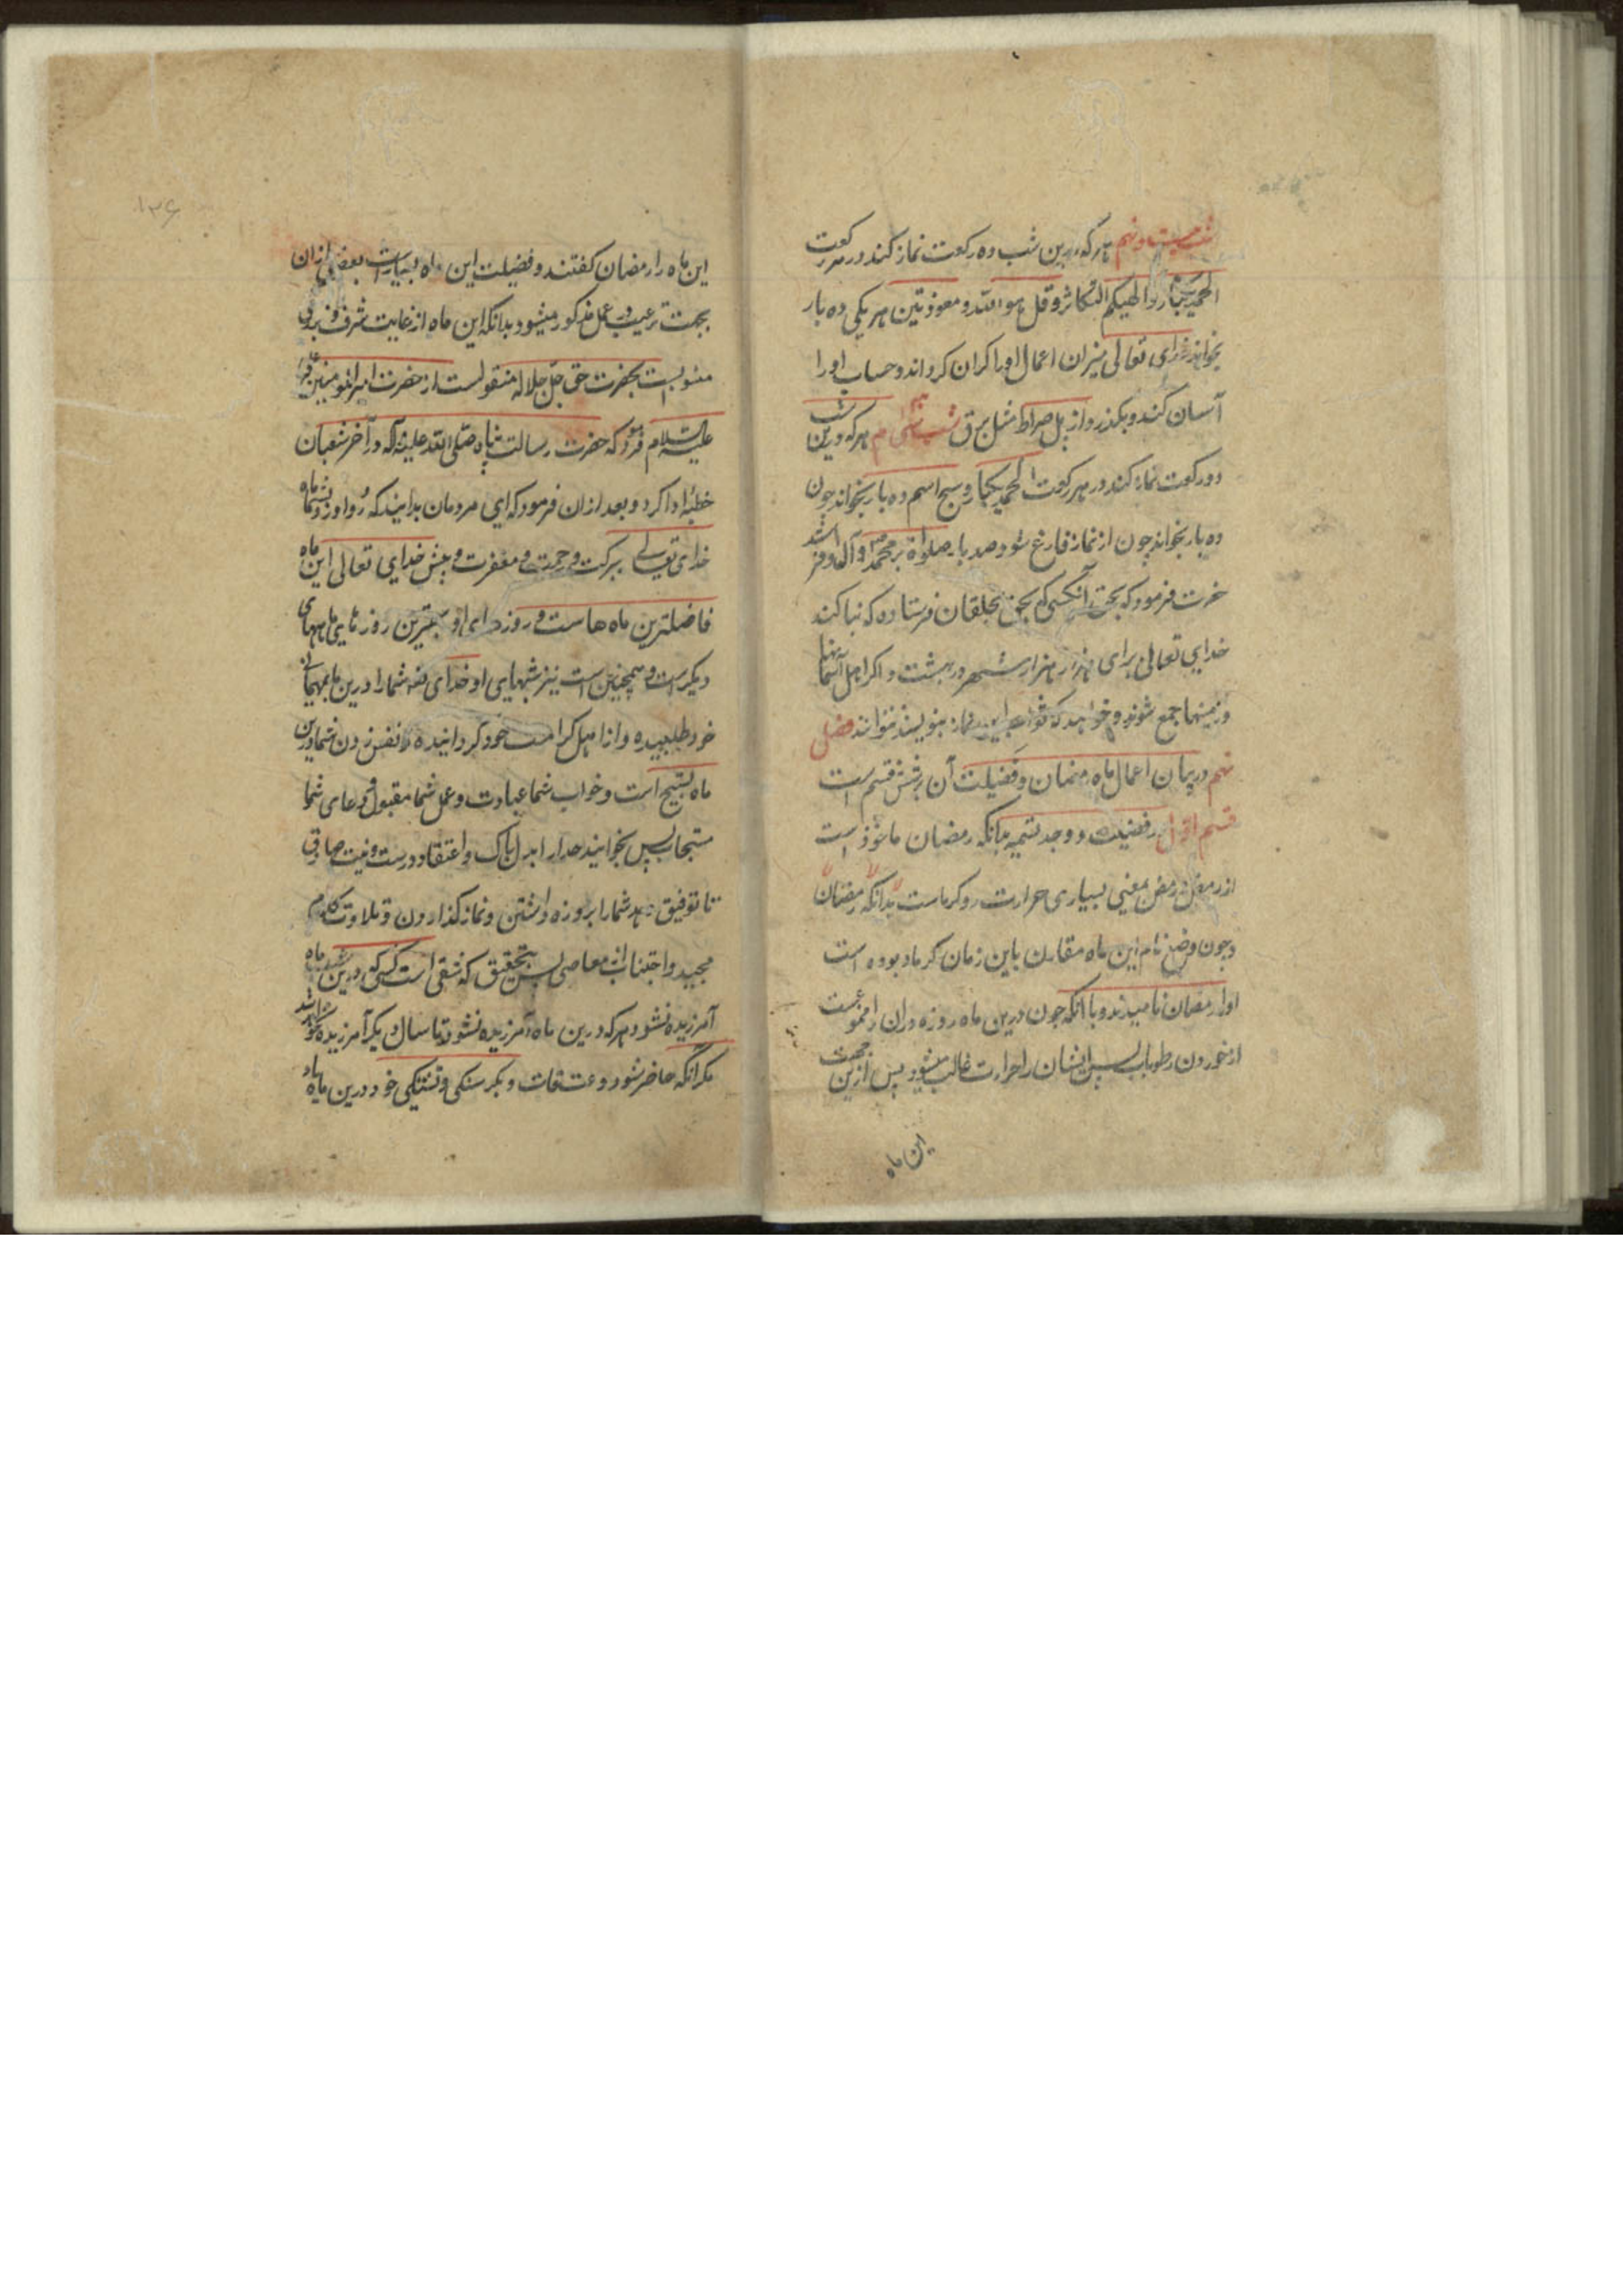 شب بیست و نهم هرکه درین شب ده رکعت نماز کند در هر رکعت
الحمد یکبار و الهیکم التکاثر و قل هو الله و معوذتین هر یکی ده بار
بخواند خدای تعالی میزان اعمال او را کران کرداند و حساب او را
آسان کند و بکذرد از پل صراط مثل برق شب سی ام هرکه درین شب
دو رکعت نماز کند در هر رکعت الحمد یکبار و سبح اسم ده بار بخواند چون
ده بار بخواند چون از نماز فارغ شود صد بار صلواة بر محمد و آل او فرستد
حضرت فرمود که بحق آنکسی که بحق بخلقان فرستاده که بنا کند
خدایی تعالی برای هزار هزار شهر در بهشت و اکر اهل آسمانها
و زمینها جمع شوند و خواهند که ثواب این نماز بنویسند نتوانند فصل
نهم در بیان اعمال ماه رمضان و فضیلت آن بر شش قسم است
قسم اول در فضیلت و وجه تسمیه بدانکه رمضان ماخوذ است
از رمض و رمض بمعنی بسیاری حرارت و کرماست بدانکه رمضان
و چون وضع نام این ماه مقارن باین زمان کرما بوده است
او را رمضان نامیدند و با آنکه چون درین ماه روزه داران را ممنوعست
از خوردن رطوبات پس ایشان را حرارت غالب میشود پس ازین جهت
این ماه
۱۲۶
این ماه را رمضان کفتند و فضیلت این ماه بسیارست بعضی ازان
بجهت ترغیب در عمل مذکور میشود بدانکه این ماه از غایت شرف و بزرکی
منسوبست بحضرت حق جل جلاله منقولست از حضرت امیرالمومنین
علیه السلام فرمود که حضرت رسالت پناه صلی الله علیه و آله در آخر شعبان
خطبه ادا کرد و بعد ازان فرمود که ای مردمان بدانید که رو آورد بشما ماه
خدای تعالی ببرکت و رحمت و مغفرت و پیش خدایی تعالی این ماه
فاضلترین ماه هاست و روزهای او بهترین روزهایی ماههای
دیکرست و همچنین است نیز شبهای او خدای تعه شما را درین ماه بمهمانی
خود طلبیده و از اهل کرامت خود کردانیده و نفس زدن شما درین
ماه تسبیح است و خواب شما عبادت و عمل شما مقبول و دعای شما
مستجاب پس بخوانید خدا را بدل پاک و اعتقاد درست و نیت صادق
تا توفیق دهد شما را بروزه داشتن و نماز کذاردن و تلاوت کلام
مجید و اجتناب از معاصی پس بتحقیق که شقی است کسی که درین ماه
آمرزیده نشود و هرکه درین ماه آمرزیده نشود تا سال دیکر آمرزیده نخواهد شد
مکر آنکه حاضر شود در عرفات و بکرسنکی و تشنکی خود درین ماه یاد